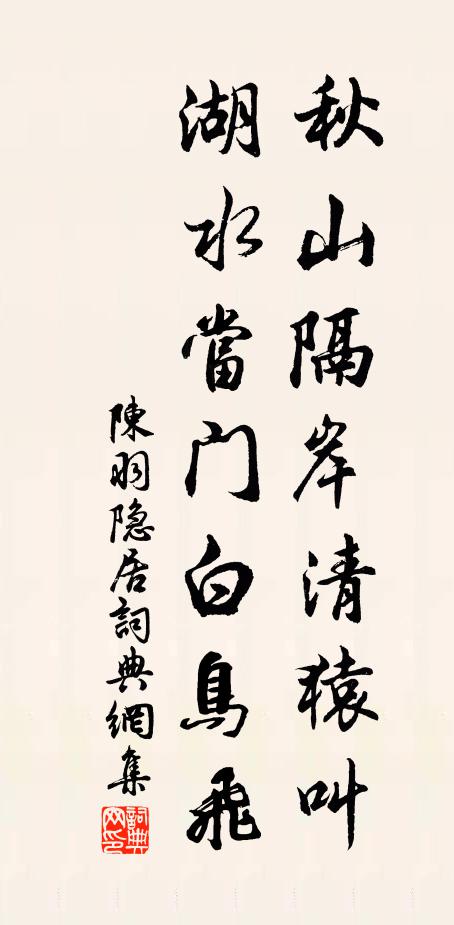 秋山隔岸清猿叫
湖水當门白鳥飛
陳羽隐居詞典網集
詞典网印